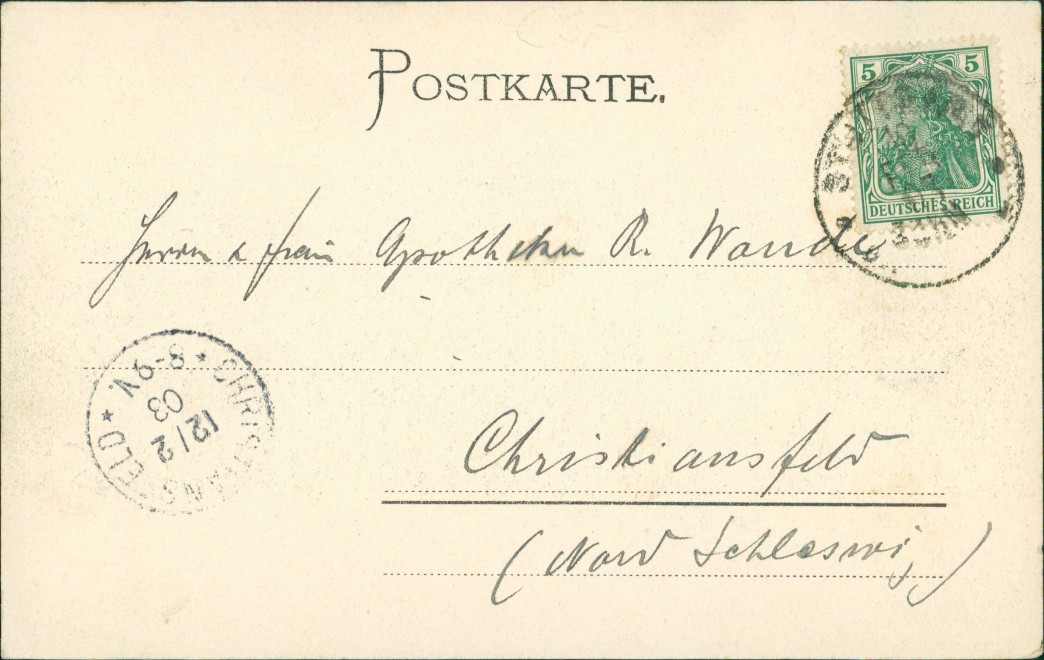 POSTKARTE.
5 5
DEUTSCHES REICH
Herrn & Frau Apotheker R.
Christiansfeld
(Nord Schleswig)
CHRISTIANSFELD
12/2
03
8-9V.